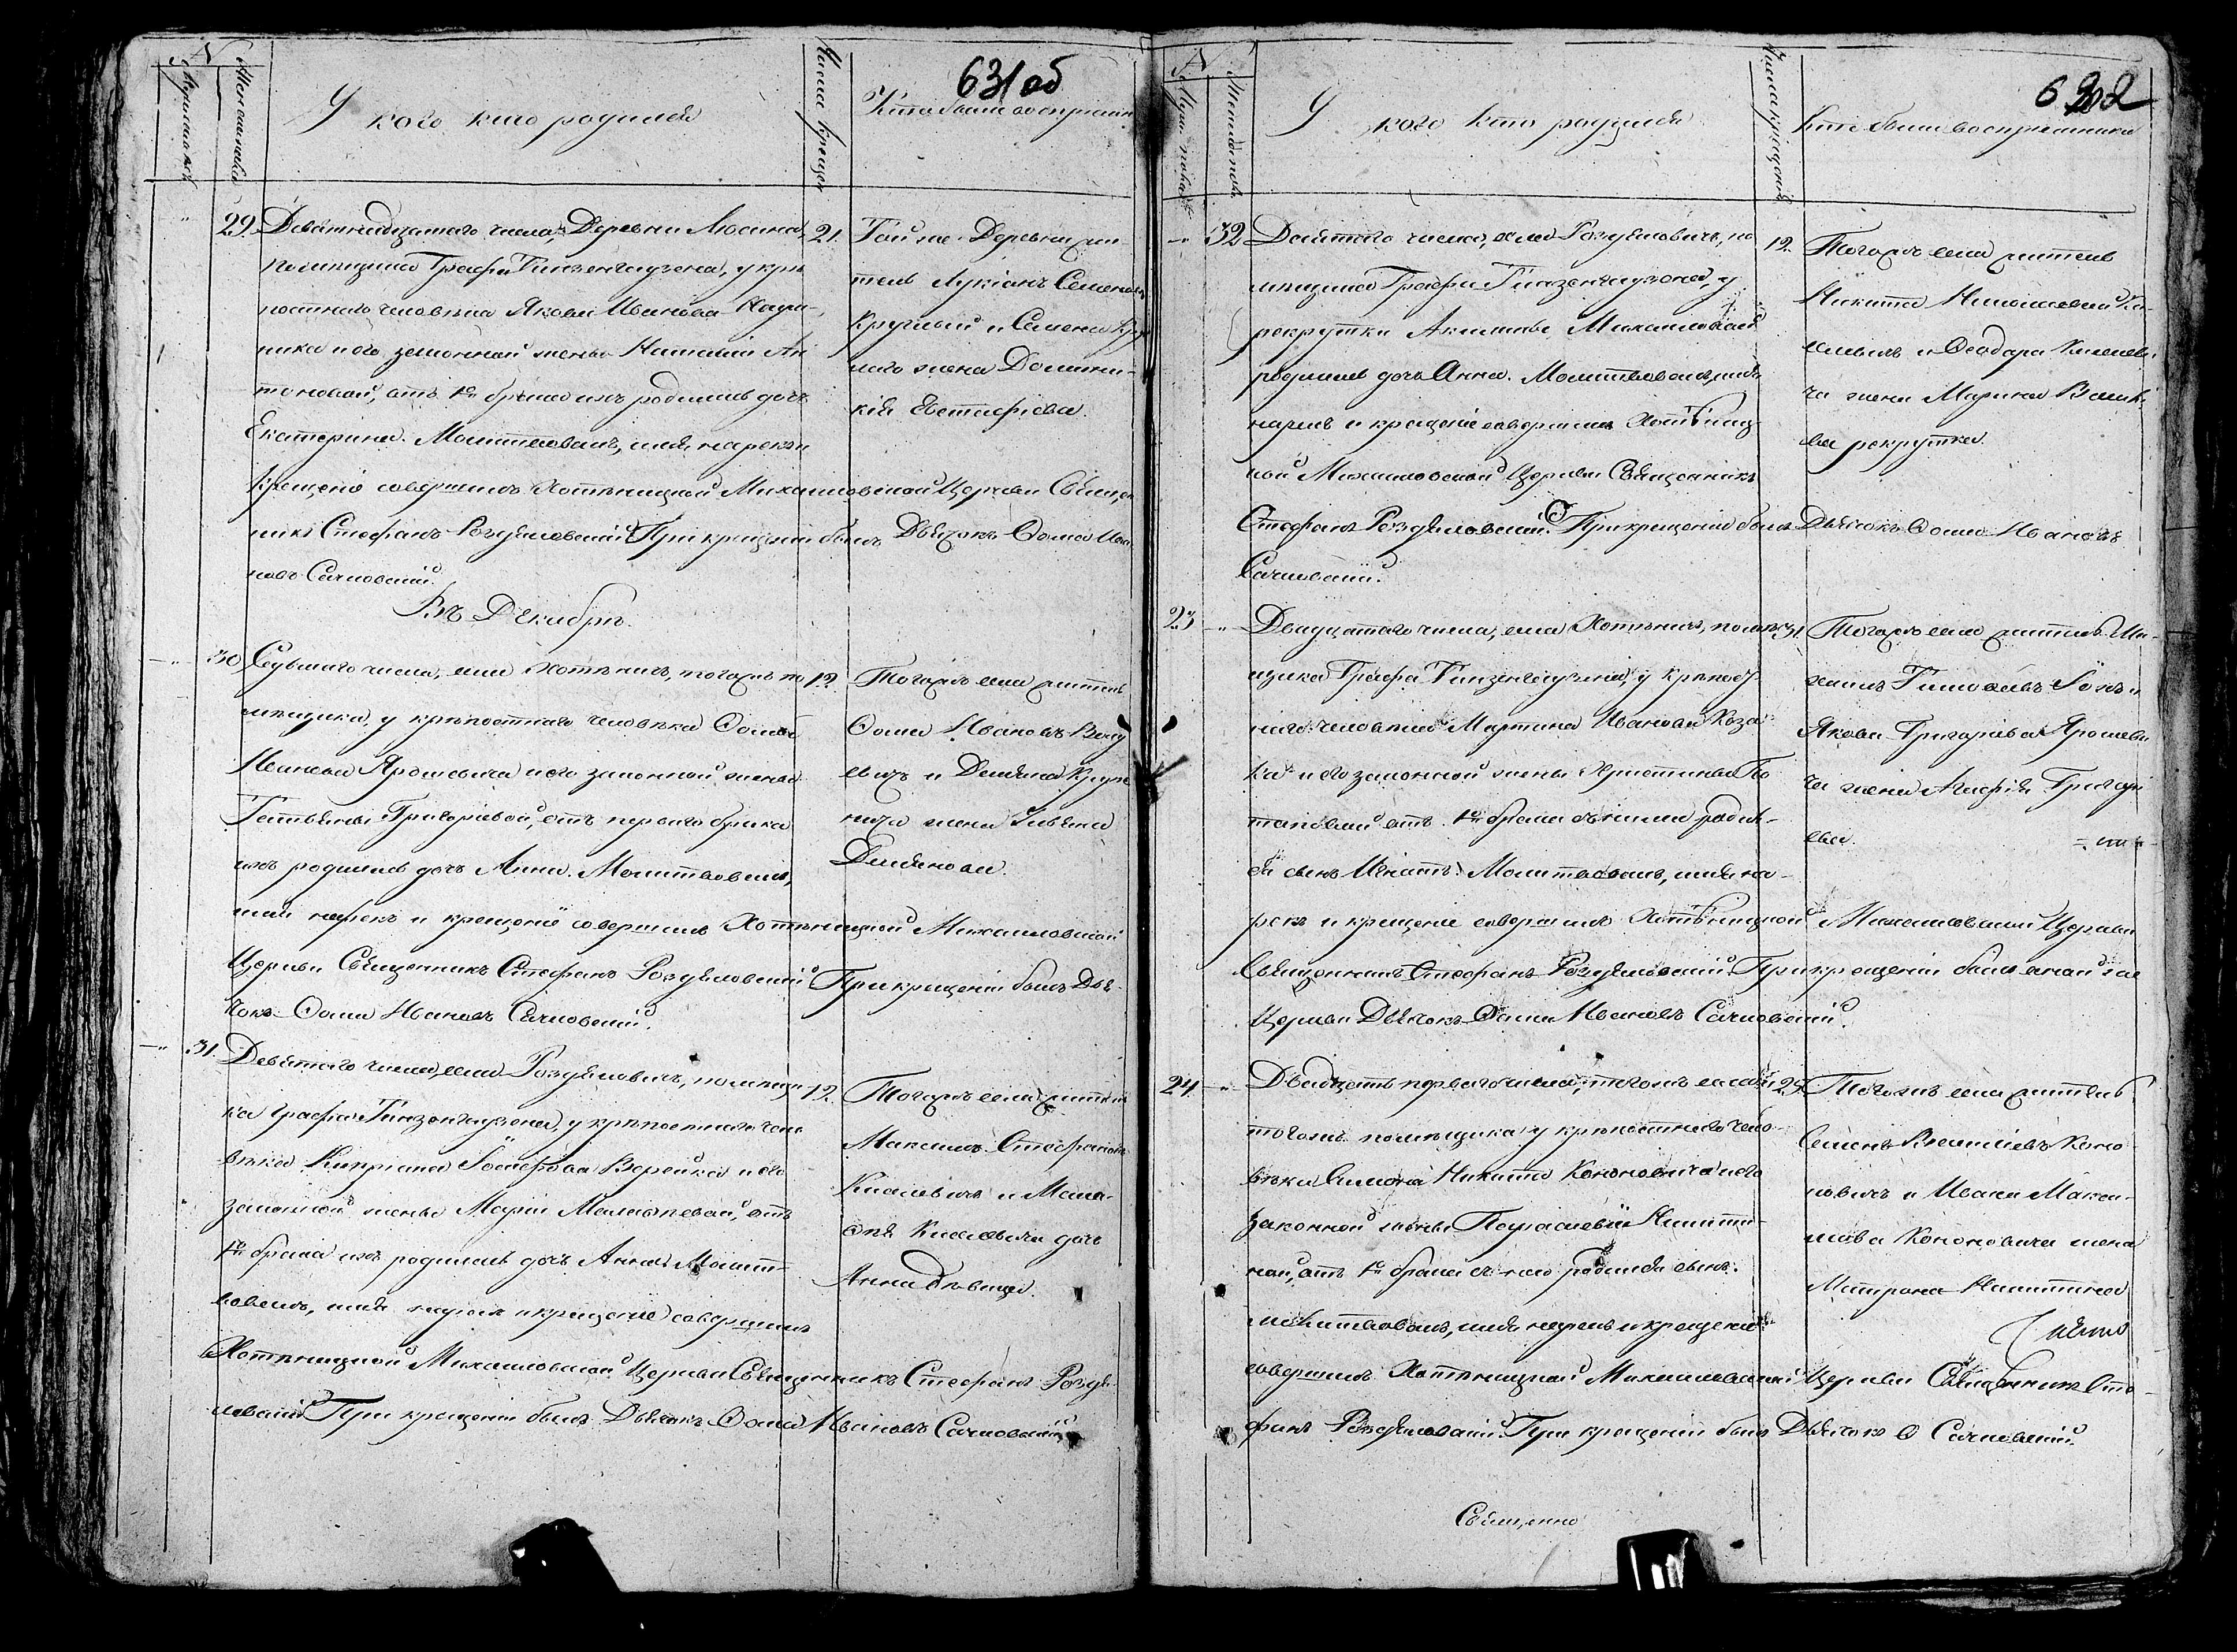 631об
N
Мужеска пола
Женска пола
У кого кто родился
Числа крещен
Кто были восприем
29. Девятнадцатаго числа, Деревни Люсина,
помещика Графа Гинзенгаузена, у крѣ
постнаго человѣка Якова Иванова
ника и его законной жены Наталіи Ан
тоновой, отъ 1го брака ихъ родилась дочь
Екатерина. Молитвовалъ, имя нарекъ и
крещеніе совершилъ Хотѣницкой Михаиловской Церкви Священ
никъ Стефанъ Роздяловскій При крещеніи былъ Дьячокъ Ѳома Ива
новъ Сачковскій.
21. Той же Деревни жи-
тель Лукіанъ Семеновъ
Круглый и Семена Кру
глаго жена Домини-
кія Евстафіева.
Въ Декабрѣ.
30 Седьмаго числа, села Хотѣничъ, тогожъ по
мѣщика, у крѣпостнаго человѣка Ѳомы
Иванова Ярошевича и его законной жены
Татьяны Григоріевой, отъ перваго брака
ихъ родилась дочь Анна. Молитвовалъ,
имя нарекъ и крещеніе совершилъ Хотѣницкой Михаиловской
Церкви Священникъ Стефанъ Роздяловскій При крещеніи былъ Дья-
чокъ Ѳома Ивановъ Сачковскій.
12. Тогожъ села житель
Ѳома Ивановъ
евичъ и Деміяна
жена
Деміянова.
31. Девятаго числа, села Роздяловичъ, помѣщи
ка Графа Гинзенгаузена, у крѣпостнаго чело
вѣка Кипріана Іосифова Верейка и его
законной жены Маріи Малафѣевой, отъ
1го брака ихъ родилась дочь Анна. Молит-
вовалъ, имя нарекъ и крещеніе совершилъ
Хотѣницкой Михаиловской Церкви Священникъ Стефанъ Роздя
ловскій При крещеніи былъ Дьячокъ Ѳома Ивановъ Сачковскій.
12. Тогожъ села житель
Максимъ Стефановъ
Киселевичъ и
Киселевича дочь
Анна дѣвица.
632
N
Муж. пола
Женска пола
У кого кто родился
Числа крещенія
Кто были восприемники
32 Девятаго числа, села Роздяловичъ, по
мѣщика Графа Гинзенгаузена, у
рекрутки Акилины Михаиловой
родилась дочь Анна. Молитвовалъ, имя
нарекъ и крещеніе совершилъ Хотѣниц
кой Михаиловской Церкви Священникъ
Стефанъ Роздяловскій. При крещеніи былъ Дьячокъ Ѳома Ивановъ
Сачковскій.
12. Тогожъ села житель
Никита Николаевъ Ки-
селевичъ и Ѳеодора Киселеви
ча жена Марина
ва рекрутка.
23 Двадцатаго числа, села Хотѣничъ, помѣ
щика Графа Гинзенгаузена, у крѣпост
наго человѣка Мартина Иванова Коза
ка и его законной жены Христины По
таповой отъ 1го брака съ нимъ родил-
ся сынъ Игнатъ. Молитвовалъ, имя на-
рекъ и крещеніе совершилъ Хотѣницкой Михаиловской Церкви
Священникъ Стефанъ Роздяловскій При крещеніи былъ оной же
Церкви Дьячокъ Ѳома Ивановъ Сачковскій.
31 Тогожъ села житель Ми-
хаилъ Тимоѳеевъ и
Якова Григоріева Ярошеви
ча жена Агафія Григорі
ева.
24 Двадцать перваго числа, тогожъ села и
тогожъ помѣщика у крѣпостнаго чело-
вѣка Симона Никиты Кононовича и его
законной жены Параскевіи Никити-
ной, отъ 1го брака съ нею родился сынъ.
молитвовалъ, имя нарекъ и крещеніе
совершилъ Хотѣницкой Михаиловской Церкви Священникъ Сте-
фанъ Роздяловскій. При крещеніи былъ Дьячокъ Ѳ Сачковскій.
25 Тогожъ села житель
Семенъ Василіевъ Коно
новичъ и Ивана Макси-
мова Кононовича жена
Матрона Никитина
Священно